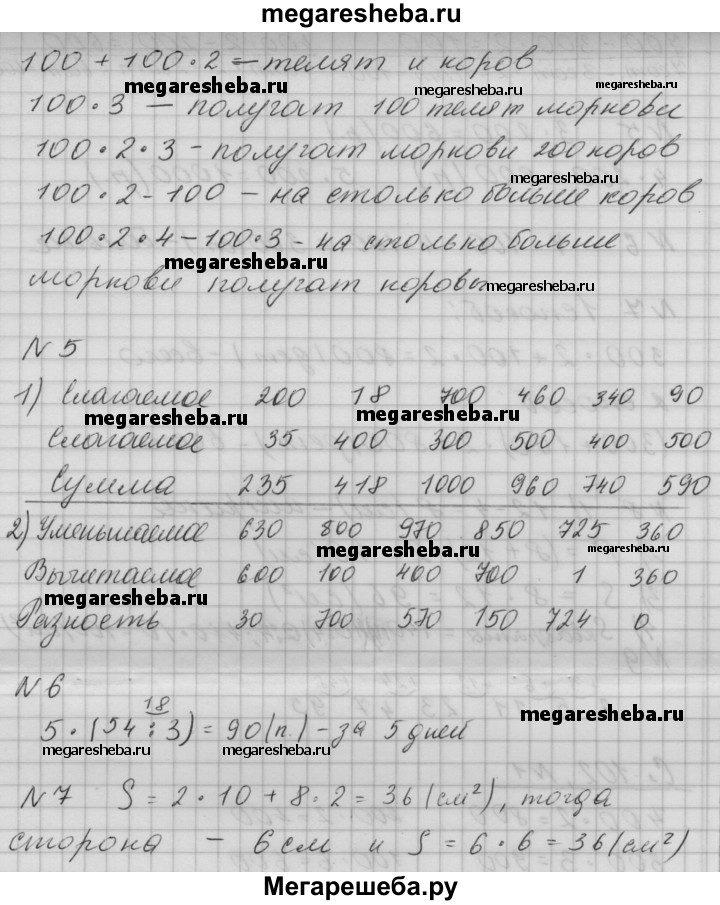 megaresheba.ru
100 + 100·2 – телят и коров
megaresheba.ru
megaresheba.ru
100·3 – получат 100 телят моркови
100·2·3 – получат моркови 200 коров
megaresheba.ru
100·2 - 100 – на столько больше коров
100·2·4 - 100·3 - на столько больше
megaresheba.ru
моркови получат коровы
megaresheba.ru
N 5
1) Слагаемое 200 18 700 460 340 90
megaresheba.ru
megaresheba.ru
Слагаемое 35 400 300 500 400 500
Сумма 235 418 1000 960 740 590
2) Уменьшаемое 630 800 970 850 725 360
megaresheba.ru
megaresheba.ru
Вычитаемое 600 100 400 700 1 360
megaresheba.ru
Разность 30 700 570 150 724 0
N 6
18
5·(54 : 3) = 90(п.) - за 5 дней
megaresheba.ru
megaresheba.ru
megaresheba.ru
N 7 S = 2·10 + 8·2 = 36 (см²), тогда
сторона – 6 см и S = 6·6 = 36 (см²)
Мегарешеба.ру